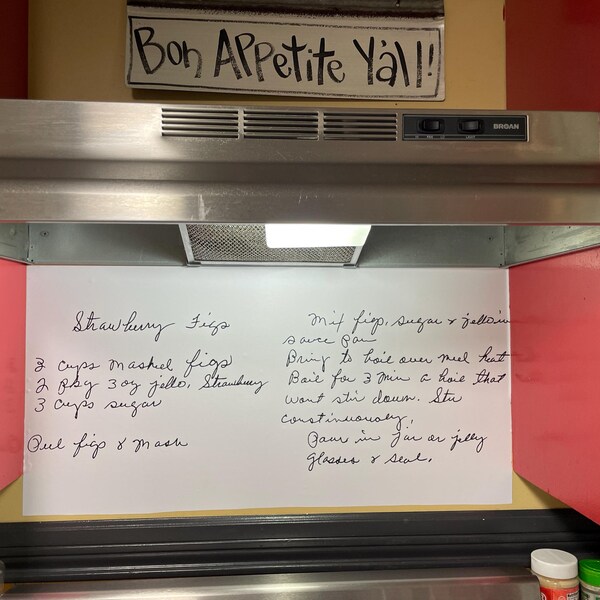 Bon Appetite Y'all!
BROAN
Strawberry Figs
3 cups mashed figs
2 pkg 3 oz jello, Strawberry
3 cups sugar
Peel figs & mash
Mix figs, sugar & jello in
sauce pan
Bring to boil over med heat
Boil for 3 min a boil that
wont stir down. Stir
constinuously,
Pour in jar or jelly
glasses & seal.